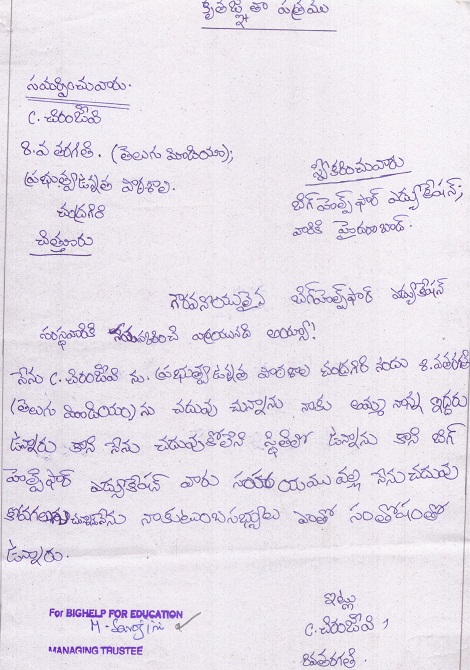 కృతజ్ఞతా పత్రము
సమర్పించువారు.
C. చిరంజీవి
8.వ తరగతి. (తెలుగు మీడియం);
ప్రభుత్వ ఉన్నత పాఠశాల.
చంద్రగిరి
చిత్తూరు
స్వీకరించువారు
బిగ్ హెల్ప్ ఫార్ ఎడ్యుకేషన్;
వారికి హైదరాబాద్.
గౌరవనీయులైన బిగ్ హెల్ప్ ఫార్ ఎడ్యుకేషన్
సంస్థవారికి నమస్కరించి వ్రాయునది అయ్యా!
నేను C. చిరంజీవి ను. ప్రభుత్వ ఉన్నత పాఠశాల చంద్రగిరి నందు 8.వతరగతి
(తెలుగు మీడియం) ను చదువు చున్నాను నాకు అమ్మ నాన్న ఇద్దరు
ఉన్నారు కానీ నేను చదువుకోలేని స్థితిలో ఉన్నాను కానీ బిగ్
హెల్ప్ ఫార్ ఎడ్యుకేషన్ వారు సహాయము వల్ల నేను చదువు
నాకుటుంబసభ్యులు ఎంతో సంతోషంతో
ఉన్నారు.
ఇట్లు
C. చిరంజీవి,
8వతరగతి.
For BIGHELP FOR EDUCATION
M. Sarojini
MANAGING TRUSTEE